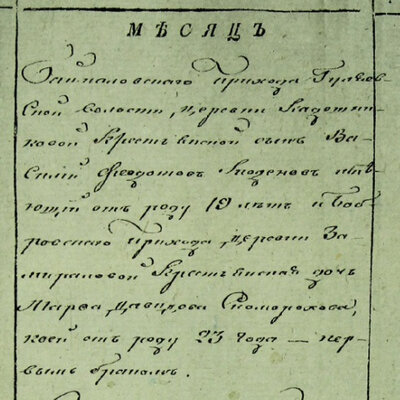 МѢСЯЦЪ
Заиналовскаго Прихода
ской волости, Деревни Кадотни-
ковой Крестьянской сынъ Ва-
силій Феодотовъ имѣ-
ющій отъ роду 19 лѣтъ и Боб-
ровскаго Прихода, деревни За-
мираловой Крестьянская дочь
Марѳа Давидова Скоморохова,
коей отъ роду 23 года — пер-
вымъ бракомъ.